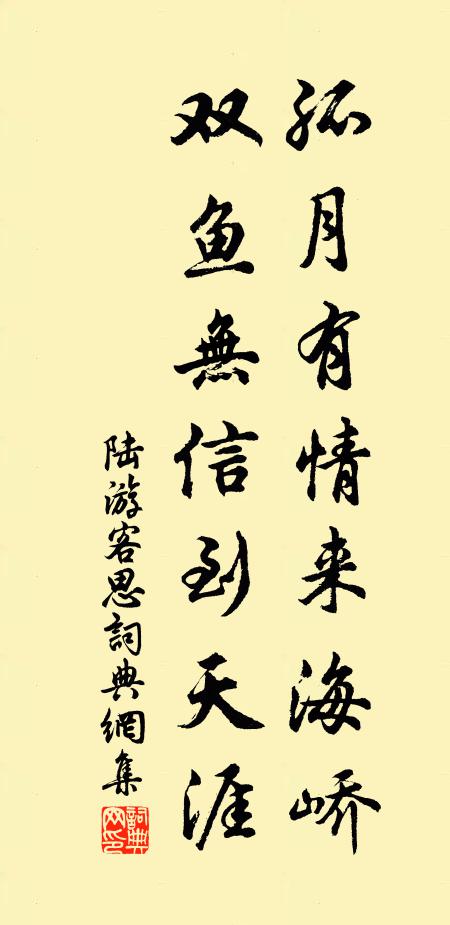 孤月有情来海峤
双鱼無信到天涯
陆游客思詞典網集
詞典网印